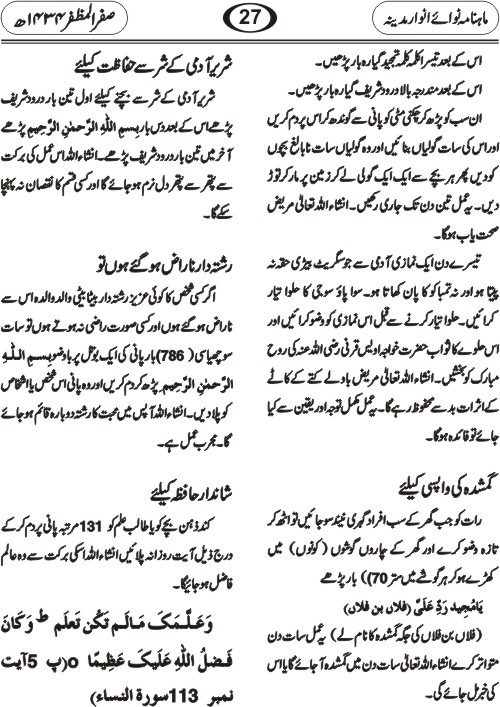 ماہنامہ نوائے انوار مدینہ
27
صفر المظفر ۱۴۳۴ھ
اس کے بعد تیسرا کلمہ کلمہ تمجید گیارہ بار پڑھیں۔
اس کے بعد مندرجہ بالا درود شریف گیارہ بار پڑھیں۔
ان سب کو پڑھ کر چکنی مٹی کو پانی سے گوندھ کر اس پر دم کریں
اور اس کی سات گولیاں بنائیں اور وہ گولیاں سات نابالغ بچوں
کو دیں پھر ہر بچے سے ایک ایک گولی لے کر زمین پر مار کر توڑ
دیں۔ یہ عمل تین دن تک جاری رکھیں۔ انشاء اللہ تعالیٰ مریض
صحت یاب ہوگا۔
تیسرے دن ایک نمازی آدمی سے جو سگریٹ بیڑی حقہ نہ
پیتا ہو اور نہ تمباکو کا پان کھاتا ہو۔ سوا پاؤ سوجی کا حلوا تیار
کرائیں۔ حلوا تیار کرنے سے قبل اس نمازی کو وضو کرائیں اور
اس حلوے کا ثواب حضرت خواجہ اویس قرنی رضی اللہ عنہ کی روح
کو بخشیں۔ انشاء اللہ تعالیٰ مریض باولے کتے کے کاٹے
کے اثرات بد سے محفوظ رہے گا۔ یہ عمل مکمل توجہ اور یقین سے کیا
جائے تو فائدہ ہوگا۔
گمشدہ کی واپسی کیلئے
رات کو جب گھر کے سب افراد گہری نیند سو جائیں تو اٹھ کر
تازہ وضو کرے اور گھر کے چاروں گوشوں (کونوں) میں
کھڑے ہو کر ہر گوشے میں ستر 70)) بار پڑھے
یَامُجِیدُ رَدَّ عَلَیَّ (فلاں بن فلاں)
(فلاں بن فلاں کی جگہ گمشدہ کا نام لے) یہ عمل سات دن
متواتر کرے انشاء اللہ تعالیٰ سات دن میں گمشدہ آ جائے گا یا اس
کی خبر مل جائے گی۔
شریر آدمی کے شر سے حفاظت کیلئے
شریر آدمی کے شر سے بچنے کیلئے اول تین بار درود شریف
پڑھے اس کے بعد دس بار بِسمِ اللّٰہِ الرَّحمٰنِ الرَّحِیمِ پڑھے
آخر میں تین بار درود شریف پڑھے۔ انشاء اللہ اس عمل کی برکت
سے پتھر سے پتھر دل نرم ہو جائے گا اور کسی قسم کا نقصان نہ پہنچا
سکے گا۔
رشتہ دار ناراض ہو گئے ہوں تو
اگر کسی شخص کا کوئی عزیز رشتہ دار بیٹا بیٹی والد والدہ اس سے
ناراض ہو گئے ہوں اور کسی صورت راضی نہ ہوتے ہوں تو سات
سو چھیاسی (786) بار پانی کی ایک بوتل پر باوضو بِسمِ اللّٰہِ
الرَّحمٰنِ الرَّحِیمِ پڑھ کر دم کریں اور وہ پانی اس شخص یا اشخاص
کو پلا دیں۔ انشاء اللہ آپس میں محبت کا رشتہ دوبارہ قائم ہو جائے
گا۔ مجرب عمل ہے۔
شاندار حافظہ کیلئے
کند ذہن بچے کو یا طالب علم کو 131 مرتبہ پانی پر دم کر کے
درج ذیل آیت روزانہ پلائیں انشاء اللہ اسکی برکت سے وہ عالم
فاضل ہو جائیگا۔
وَعَلَّمَکَ مَالَم تَکُن تَعلَم ط وَکَانَ
فَضلُ اللّٰہِ عَلَیکَ عَظِیمًا o(پ 5آیت
نمبر 113سورۃ النساء)